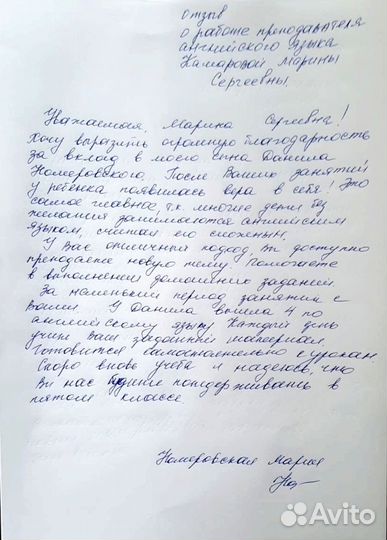 Отзыв
о работе преподавателя
английского языка
Камаровой Марины
Сергеевны.
Уважаемая, Марина Сергеевна!
Хочу выразить огромную благодарность
за вклад в моего сына Данила
Номеровского. После Ваших занятий
у ребёнка появилась вера в себя! Это
самое главное, т.к. многие дети без
желания занимаются английским
языком, считая его сложным.
У Вас отличный подход, Вы доступно
преподаёте новую тему. Помогаете
в выполнении домашних заданий.
За маленький период занятий с
Вами У Данила вышла 4 по
английскому языку. Каждый день
учит Ваш заданный материал.
Готовится самостоятельно к урокам.
Скоро вновь учёба и надеюсь, что
Вы нас будите поддерживать в
пятом классе.
Номеровская Мария
Avito